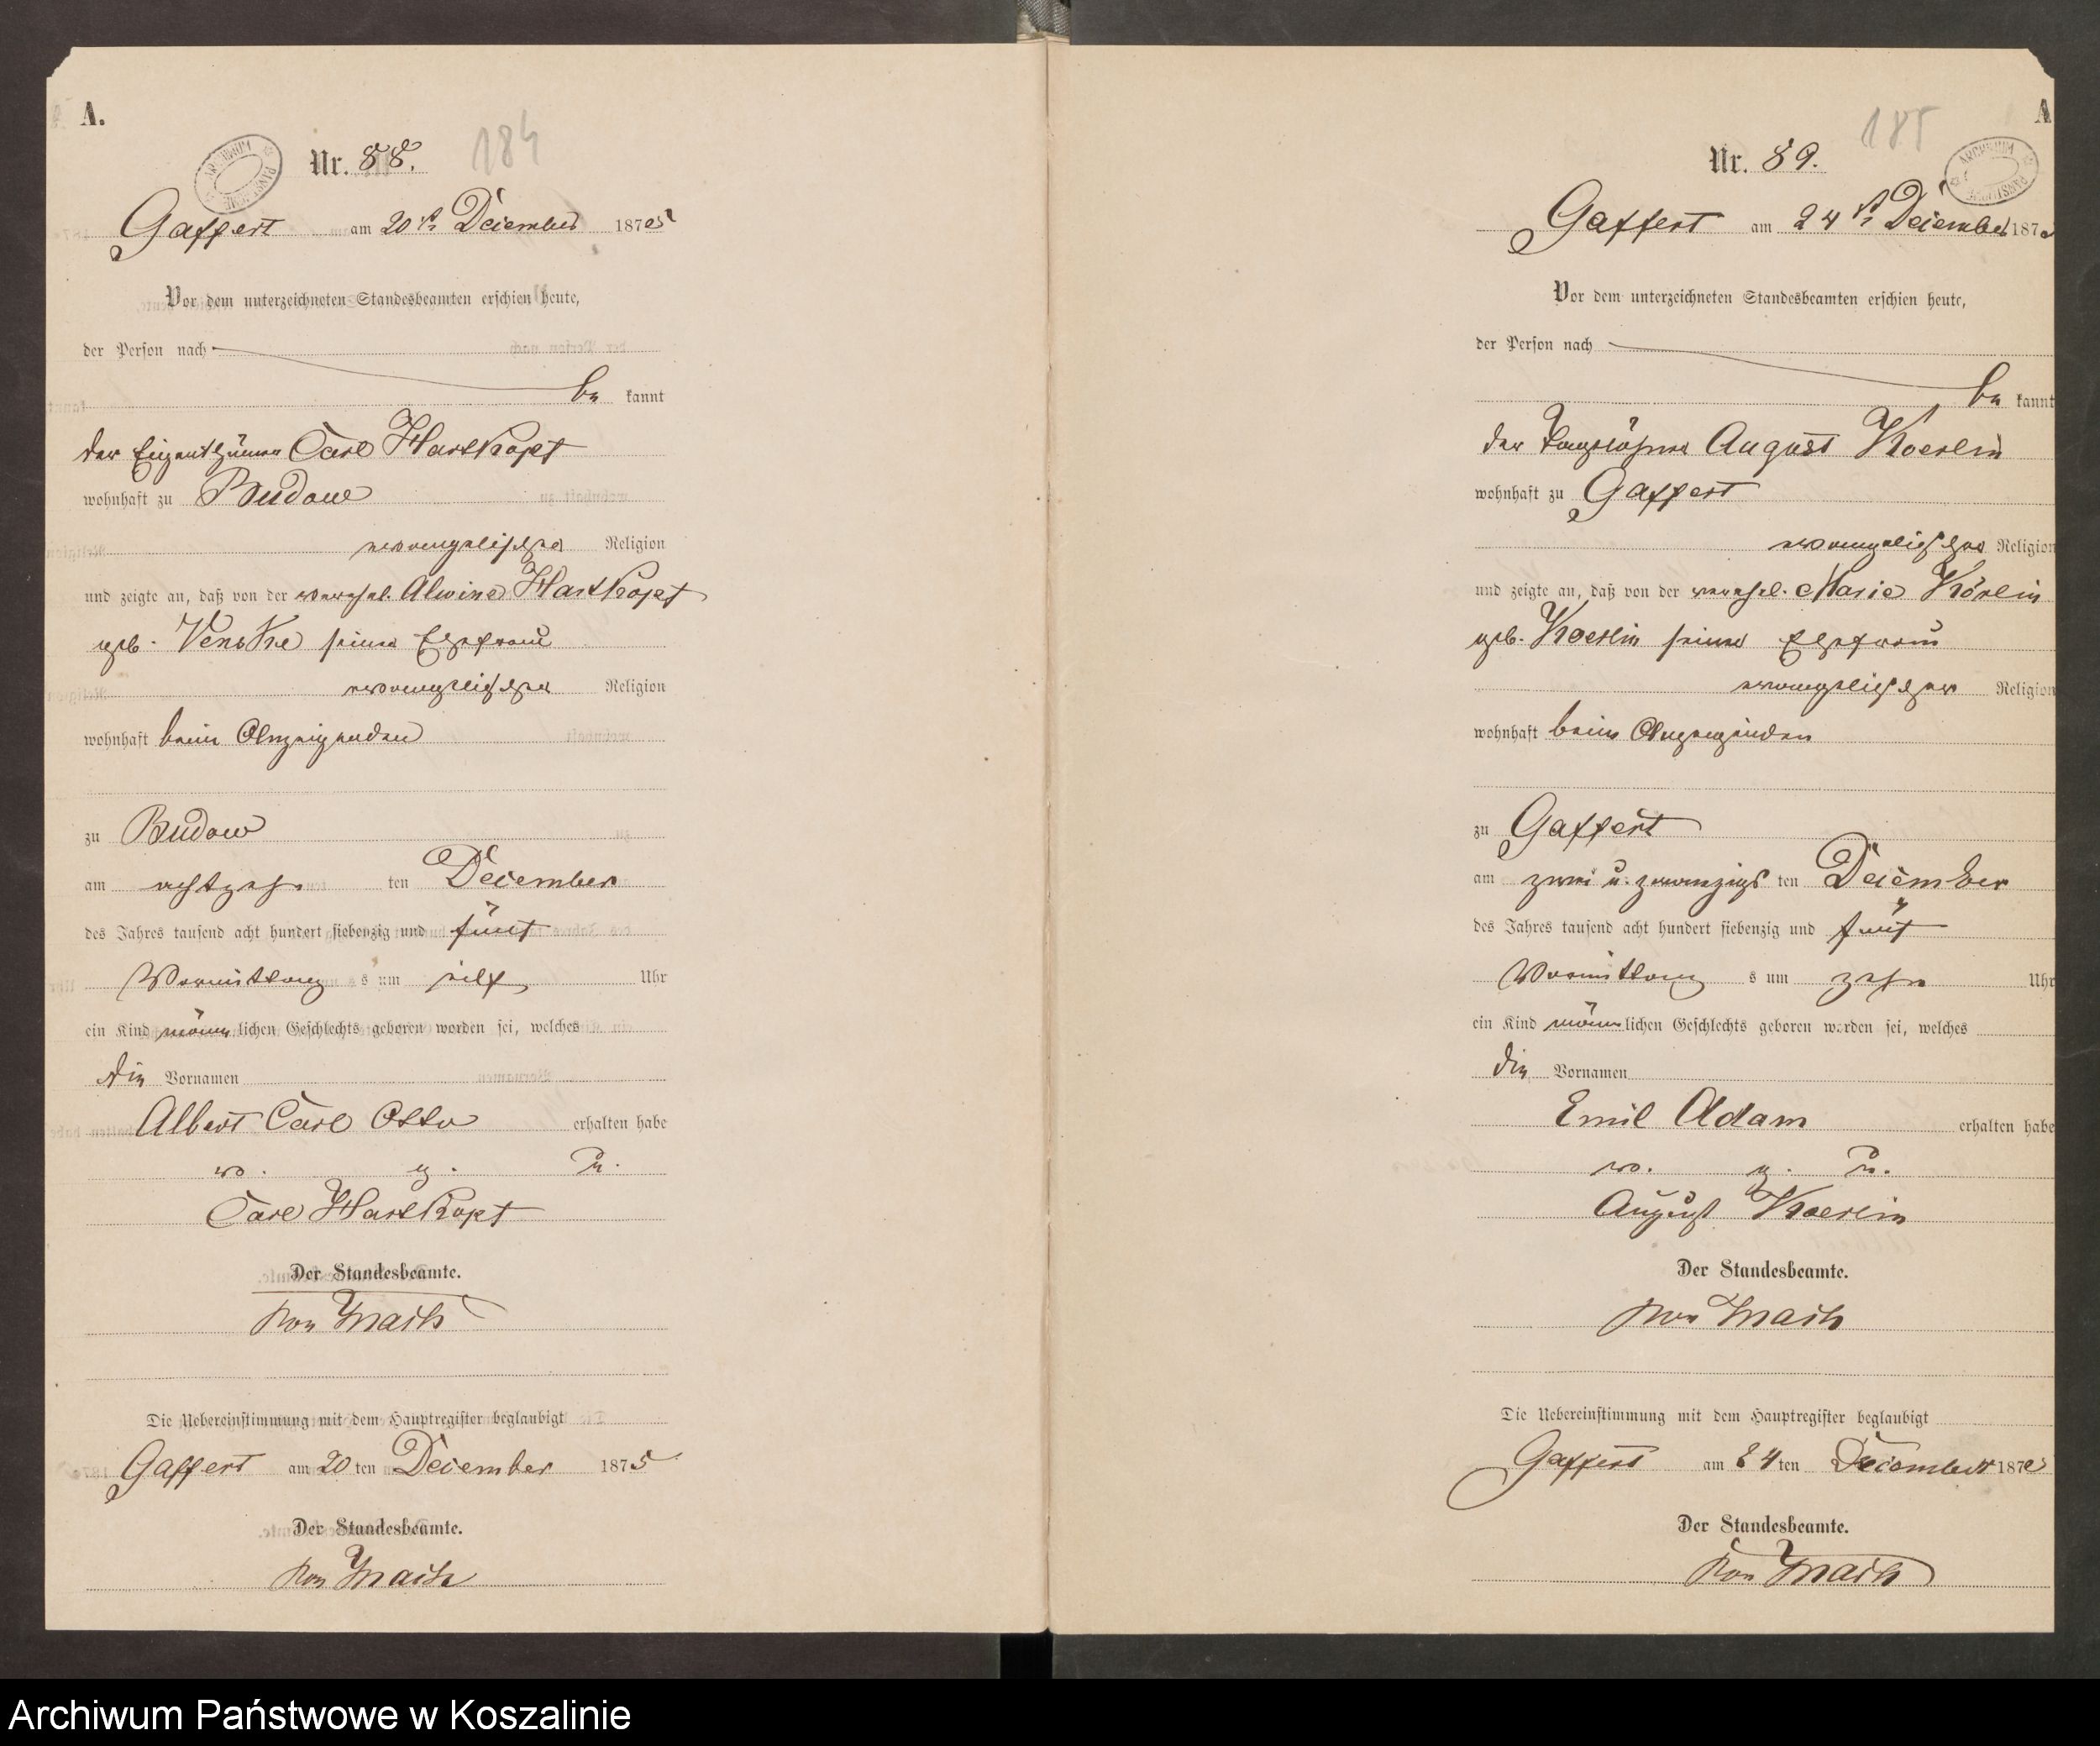 A.
Nr. 88.
184
Gaffert am 20t. December 1875
Vor dem unterzeichneten Standesbeamten erschien heute,
der Person nach
be kannt
der Eigenthümer Carl Hartkopf
wohnhaft zu Budow
evangelischer Religion
und zeigte an, daß von der verehel. Alwine Hartkopf
geb. Venske seiner Ehefrau
evangelischer Religion
wohnhaft beim Anzeigenden
zu Budow
am achtzehn ten December
des Jahres tausend acht hundert siebenzig und fünf
Vormittag s um elf Uhr
ein Kind männ lichen Geschlechts geboren worden sei, welches
die Vornamen
Albert Carl Otto erhalten habe
v. g. u.
Carl Hartkopf
Der Standesbeamte.
Die Uebereinstimmung mit dem Hauptregister beglaubigt
Gaffert am 20 ten December 1875
Der Standesbeamte.
A
Nr. 89.
185
Gaffert am 24t. December 187
Vor dem unterzeichneten Standesbeamten erschien heute,
der Person nach
be kannt
der Tagelöhner August Koerlin
wohnhaft zu Gaffert
evangelischer Religion
und zeigte an, daß von der verehel. Marie Körlin
geb. Koerlin seiner Ehefrau
evangelischer Religion
wohnhaft beim Anzeigenden
zu Gaffert
am zwei u. zwanzigs ten December
des Jahres tausend acht hundert siebenzig und fünf
Vormittag s um zehn Uhr
ein Kind männ lichen Geschlechts geboren worden sei, welches
die Vornamen
Emil Adam erhalten habe
v. g. u.
August Koerlin
Der Standesbeamte.
Die Uebereinstimmung mit dem Hauptregister beglaubigt
Gaffert am 24 ten December 187
Der Standesbeamte.
Archiwum Państwowe w Koszalinie